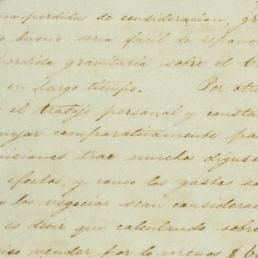 una perdida de consideracion, gr
bueno seria facil de repone
perdida gravitaria sobre el C
en largo tiempo. Por otr
el trabajo personal y consta
mayor comparativamente pa
misiones trae muchos disgus
efectos, y como los gastos so
los negocios sean consideras
es decir que calculando sobre
vender por lo menos $ 6